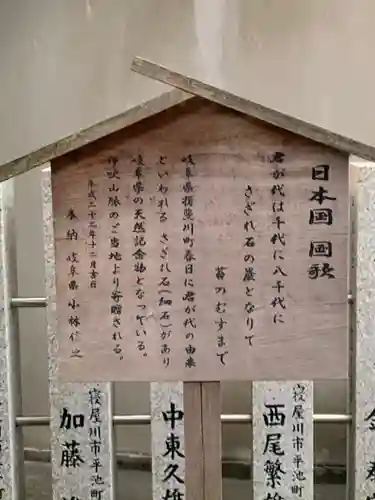 日本国国歌
君が代は千代に八千代に
さざれ石の巌となりて
苔のむすまで
岐阜県揖斐川町春日に君が代の由来
といわれる さざれ石(細石)があり
岐阜県の天然記念物となっている。
伊吹山脈のご当地より寄贈される。
平成二十二年十二月吉日
奉納 岐阜県 小林
寝屋川市平池町
加藤
中東久
寝屋川市平池町
西尾繁